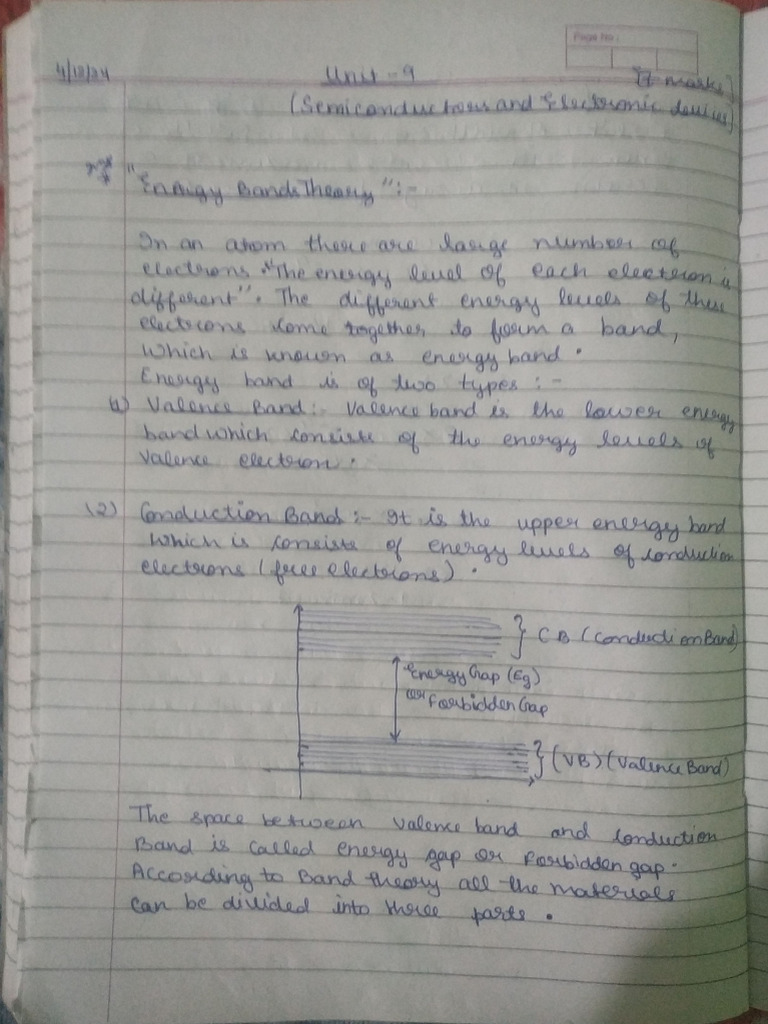 Page No.:
4/12/24
Unit - 9
[7 marks]
(Semiconductors and Electronic devices)
"Energy Bands Theory" :-
In an atom there are large number of
electrons. "The energy level of each electron is
different". The different energy levels of these
electrons come together to form a band,
Which is known as energy band.
Energy band is of two types : -
(1) Valence Band :- Valence band is the lower energy
band which consists of the energy levels of
Valence electron.
(2) Conduction Band :- It is the upper energy band
Which is consists of energy levels of conduction
electrons (free electrons).
} CB (Conduction Band)
Energy Gap (Eg)
or Forbidden Gap
} (VB) (Valence Band)
The space between valence band and conduction
Band is called energy gap or Forbidden gap.
According to Band theory all the materials
can be divided into three parts.